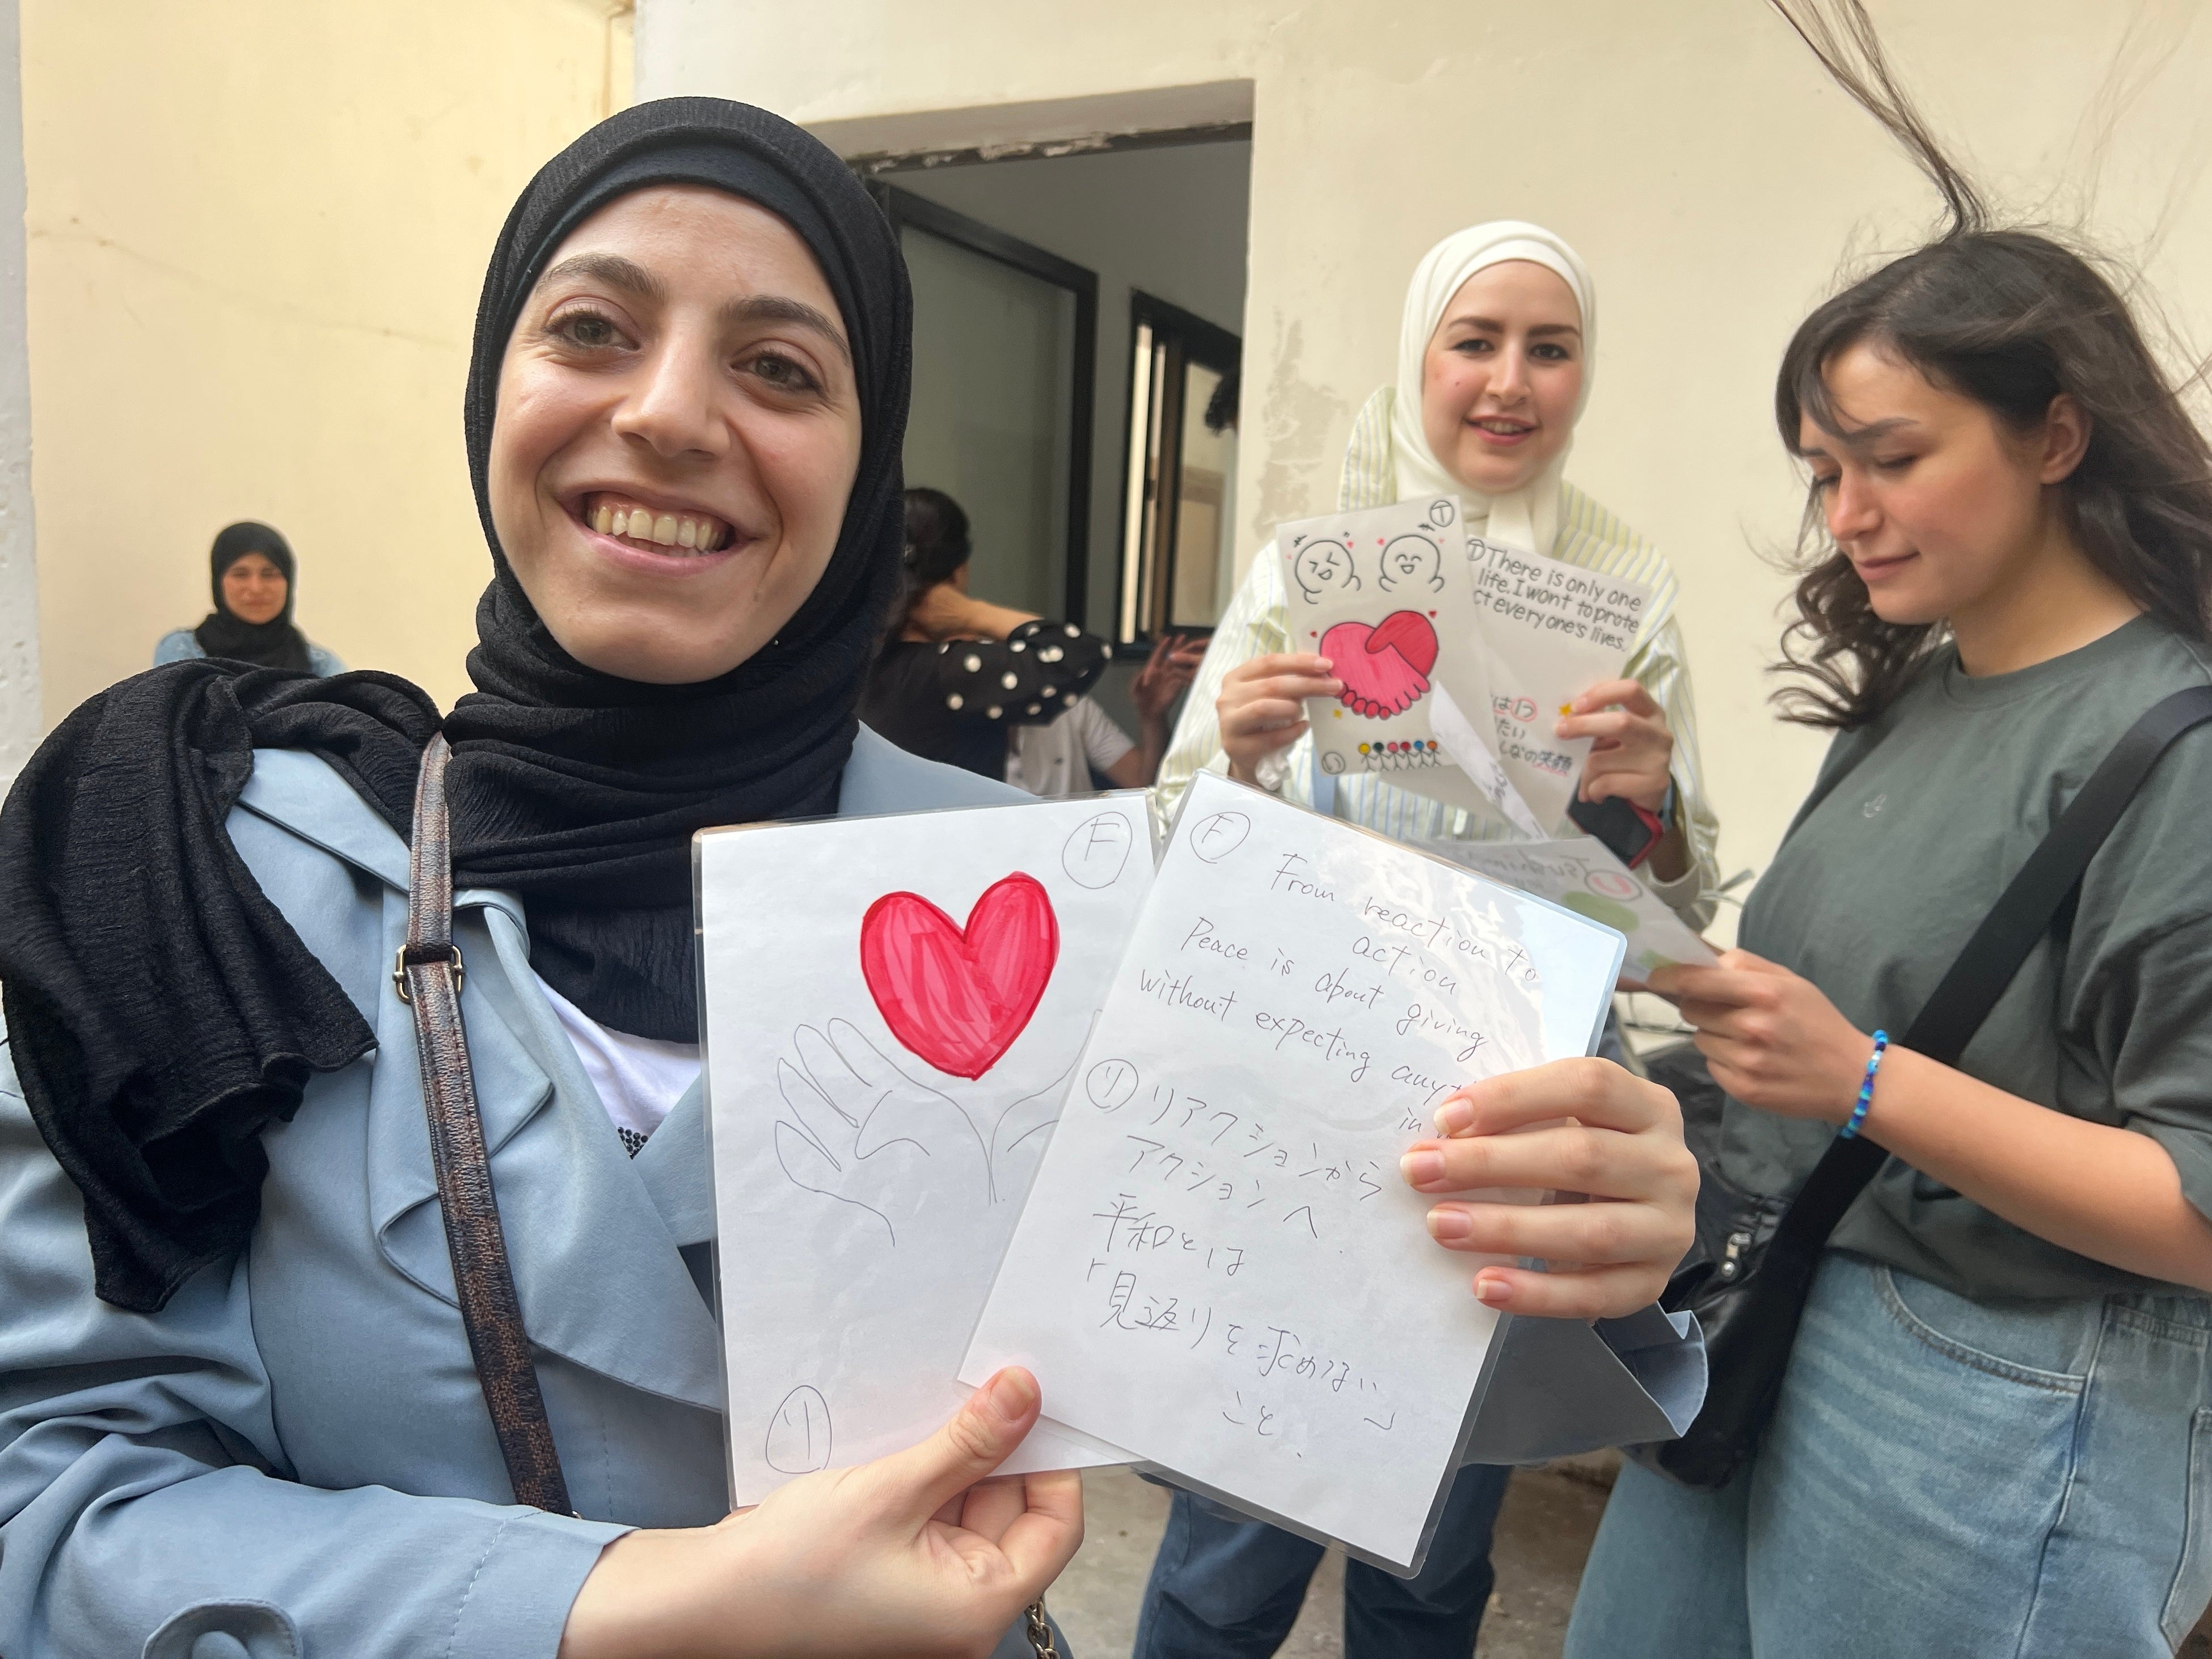 F
リ
F
From reaction to
action
Peace is about giving
without expecting
in
リ リアクションから
アクションへ.
平和とは
「見返りを求めない」
こと.
T
い
T There is only one
life. I wont to prote
ct everyone's lives.
は1つ
たい
なの笑顔